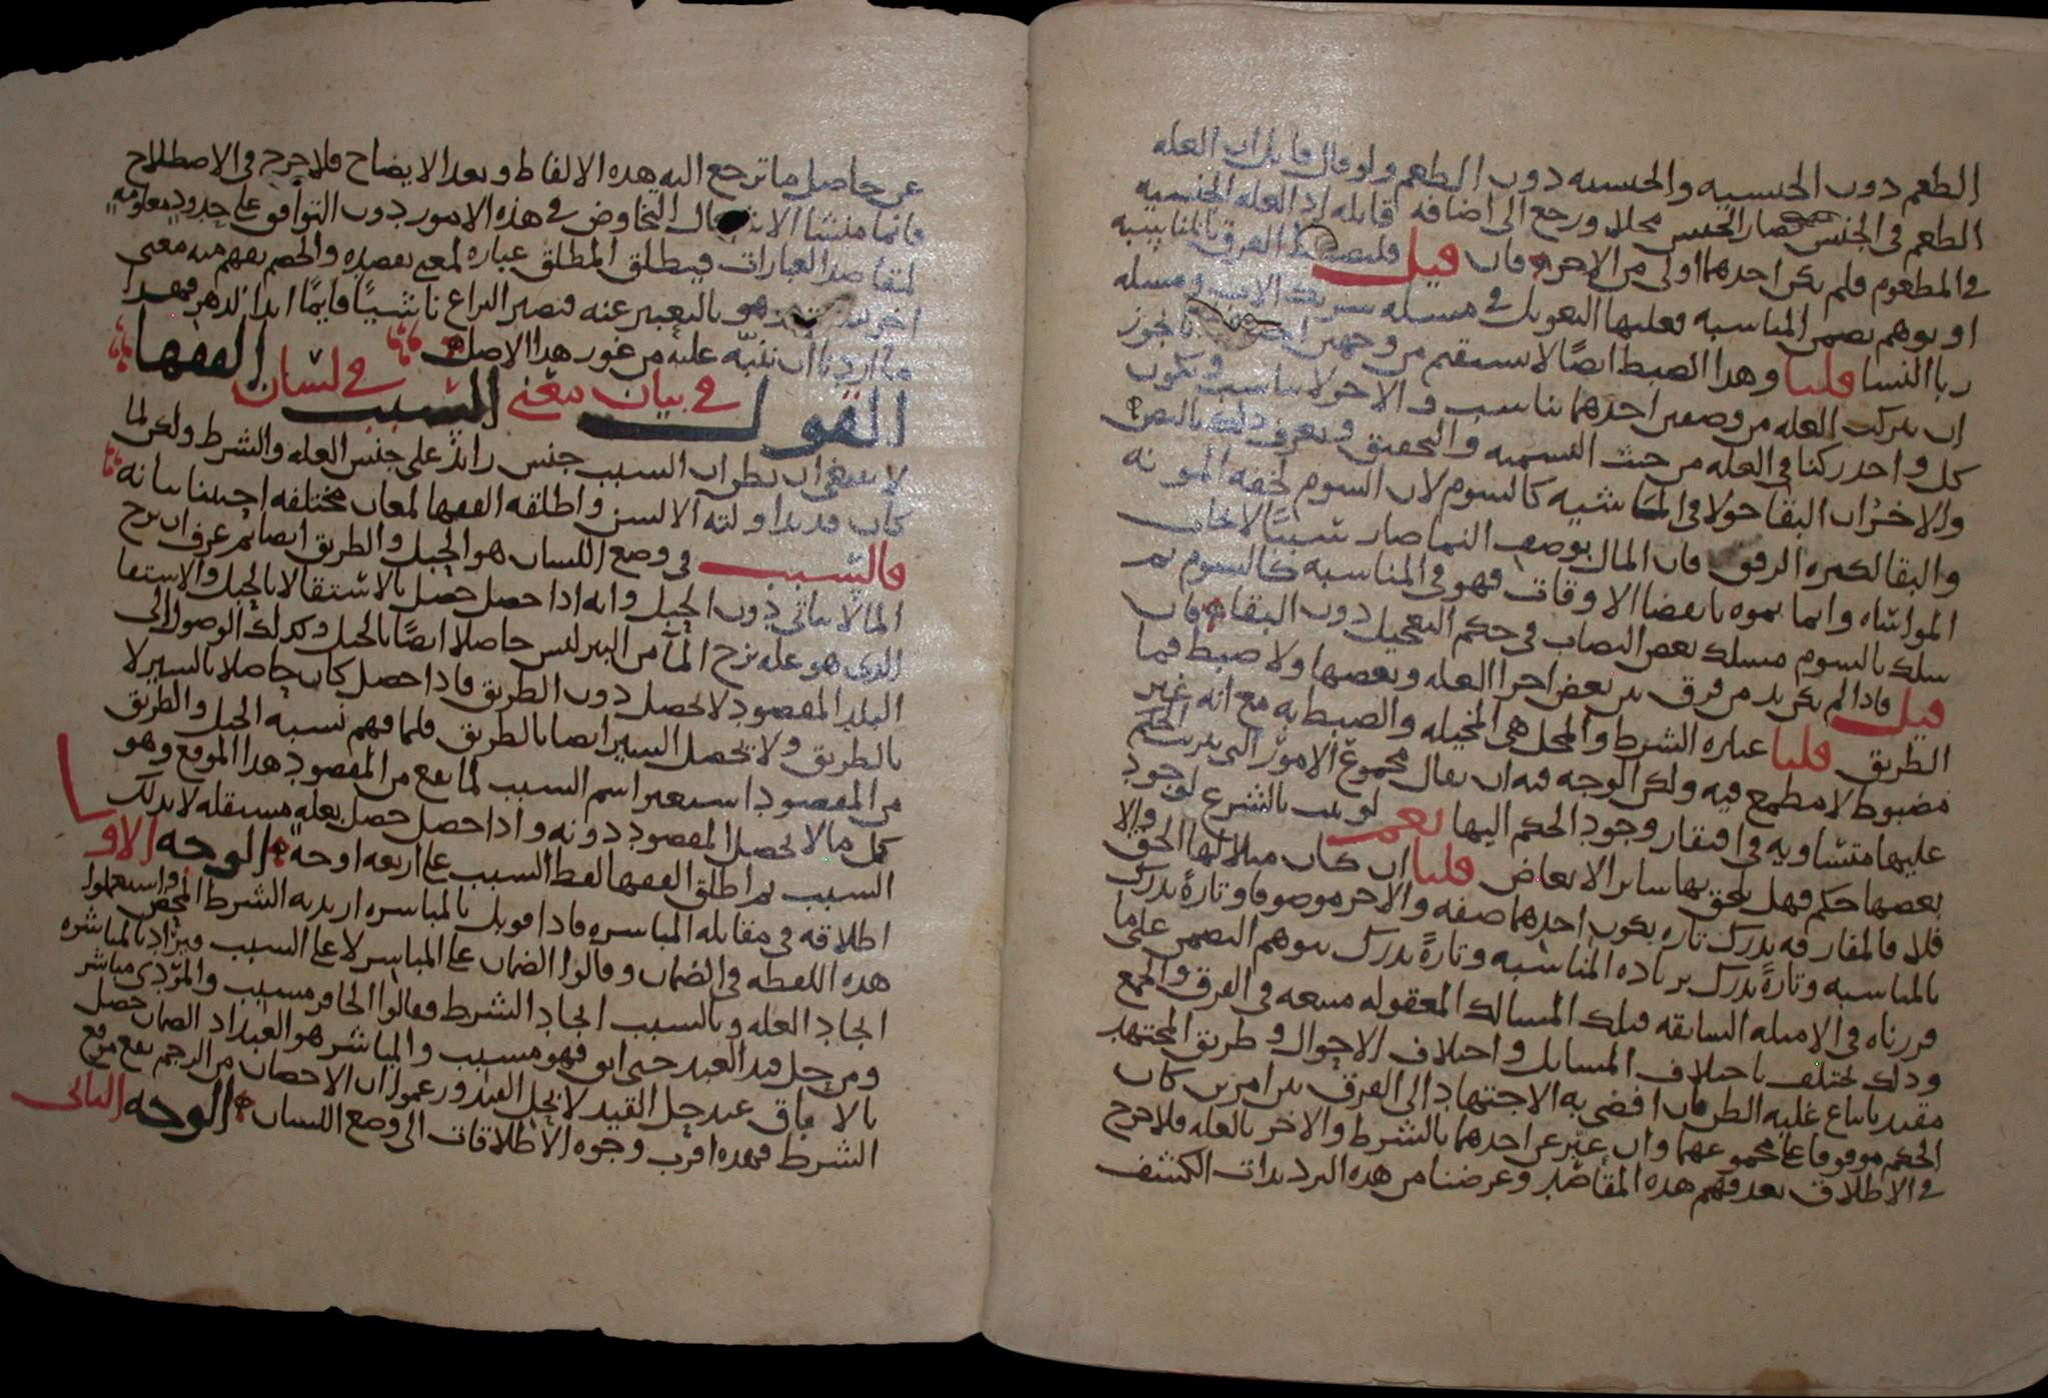 الطعم دون الجنسيه والجنسيه دون الطعم ولو قال قايل ان العله
الطعم في الجنس صار الجنس محلا ورجع الى اضافه قابله اذ العله الجنسيه
في المطعوم فلم يكن احدهما اولى من الاخر فان قيل فليضبط الفرق بالمناسبه
او توهم تضمن المناسبه فعليها التعويل في مسله الابنيه ومسله
ربا النسا قلنا وهذا الضبط ايضا لا يستقيم من وجهين احدهما يجوز
ان تتركب العله من وصفين احدهما يناسب والاخر لا يناسب ويكون
كل واحد ركنا في العله من حيث التسميه والتحقيق ويعرف ذلك بالنص
والاخر ان البقا حولا في الماشيه كالسوم لان السوم لخفه المونه
والبقا لكثره الرفق فان المال بوصف النما صار سببا لايجاب
المواساه وانما نموه بانقضا الاوقات فهو في المناسبه كالسوم ثم
سلك بالسوم مسلك بعض النصاب في حكم التعجيل دون البقا فان
قيل فاذا لم يكن بد من فرق بين بعض اجزا العله وبعضها ولا ضبط فما
الطريق قلنا عباره الشرط والمحل هي المخيله والضبط به مع انه غير
مضبوط لا مطمع فيه ولكن الوجه فيه ان يقال مجموع الامور التي يترتب الحكم
عليها متساويه في افتقار وجود الحكم اليها نعم لو ثبت بالشرع لوجود
بعضها حكم فهل يلحق بها ساير الابعاض قلنا ان كان مثلا لها الحق والا
فلا فالمفارقه تدرك تاره بكون احدهما صفه والاخر موصوفا وتارة تدرك
بالمناسبه وتارة تدرك بزياده المناسبه وتارة تدرك بتوهم التضمن على ما
قررناه في الامثله السابقه فتلك المسالك المعقوله متبعه في الفرق والجمع
وذلك يختلف باختلاف المسايل واختلاف الاحوال وطريق المجتهد
مقيد باتباع غلبه الظن فان افضى به الاجتهاد الى الفرق بين امرين كان
الحكم موقوفا على مجموعهما وان عبر عن احدهما بالشرط والاخر بالعله فلا حرج
في الاطلاق بعد فهم هذه المقاصد وغرضنا من هذه الترديدات الكشف
عن حاصل ما ترجع اليه هذه الالفاظ وبعد الايضاح فلا حرج في الاصطلاح
فانما منشا الاشكال التخاوض في هذه الامور دون التوافق على حدود معلومه
لمقاصد العبارات فيطلق المطلق عباره لمعنى يقصده والخصم يفهم منه معنى
اخر هو بالتعبير عنه فيصير النزاع ناشبا قايما ابد الدهر فهذا
ما اردنا ان ننبه عليه من غور هذا الاصل
القول في بيان معنى السبب في لسان الفقها
لا ينبغي ان يظن ان السبب جنس زايد على جنس العله والشرط ولكن لما
كان قد تداولته الالسن واطلقه الفقها لمعان مختلفه احببنا بيانه
فالسبب في وضع اللسان هو الحبل والطريق ايضا ثم عرف ان نزح
الما لا يتاتى دون الحبل وانه اذا حصل حصل بالاستقا لا بالحبل والاستقا
الذي هو عله نزح الما من البير ليس حاصلا ايضا بالحبل وكذلك الوصول الى
البلد المقصود لا يحصل دون الطريق فاذا حصل كان حاصلا بالسير لا
بالطريق ولا يحصل السير ايضا بالطريق فلما فهم نسبه الحبل والطريق
من المقصود استعير اسم السبب لما يقع من المقصود هذا الموقع وهو
كل ما لا يحصل المقصود دونه واذا حصل حصل بعله مستقله لا بذلك
السبب ثم اطلق الفقها لفظ السبب على اربعه اوجه الوجه الاول
اطلاقه في مقابله المباشره فاذا قوبل بالمباشره اريد به الشرط المحض واستعملوا
هذه اللفظه في الضمان وقالوا الضمان على المباشر لا على السبب ويراد بالمباشره
ايجاد العله وبالسبب ايجاد الشرط فقالوا الحافر مسبب والمردي مباشر
ومن حل قيد العبد حتى ابق فهو مسبب والمباشر هو العبد اذ الضمان حصل
بالاباق عند حل القيد لا بحل القيد وزعموا ان الاحصان من الرجم يقع موقع
الشرط فهذه اقرب وجوه الاطلاقات الى وضع اللسان الوجه الثاني